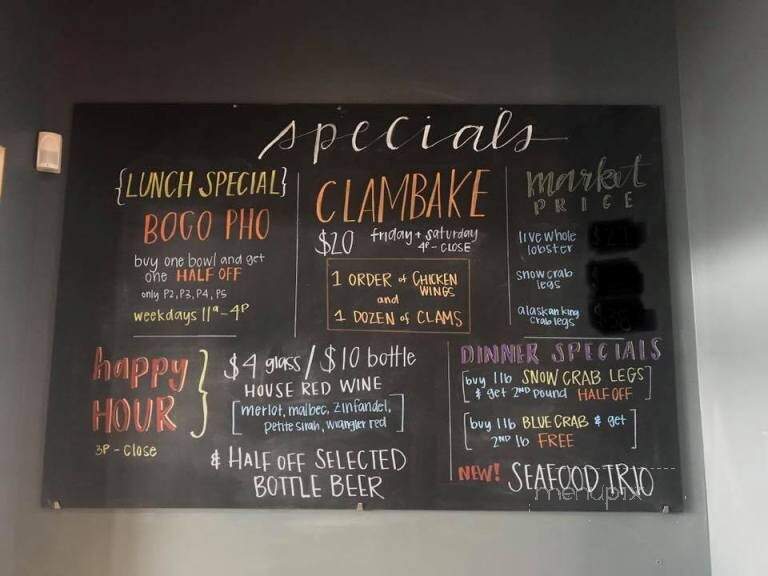 specials
{LUNCH SPECIAL}
BOGO PHO
buy one bowl and get
one HALF OFF
only P2, P3, P4, P5
weekdays 11ᵃ - 4P
CLAMBAKE
$20 friday + saturday
4P - CLOSE
1 ORDER of CHICKEN
WINGS
and
1 DOZEN of CLAMS
market
PRICE
live whole
lobster
snow crab
legs
alaskan king
crab legs
happy
HOUR
3P - Close
$4 glass / $10 bottle
HOUSE RED WINE
[merlot, malbec, zinfandel,
petite sirah, wrangler red]
& HALF OFF SELECTED
BOTTLE BEER
DINNER SPECIALS
[buy 1 lb SNOW CRAB LEGS
& get 2ND pound HALF OFF]
[buy 1 lb BLUE CRAB & get
2ND lb FREE]
NEW! SEAFOOD TRIO
menupix